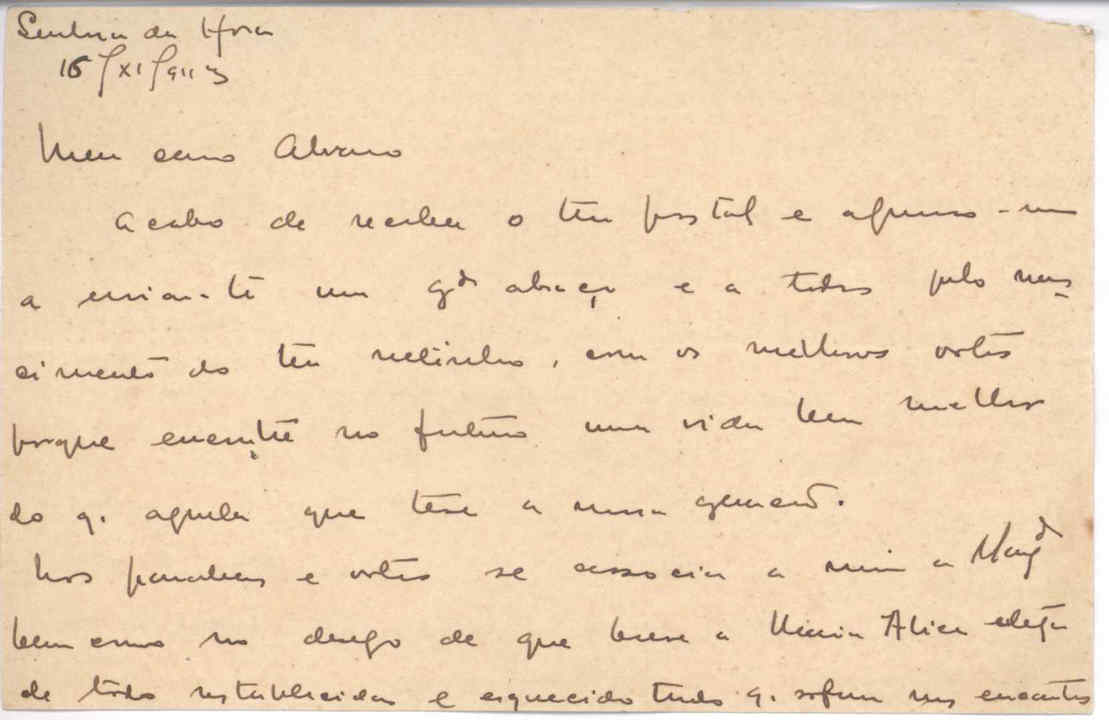 Senhora da Hora
15/XI/
Meu caro Alvaro
Acabo de receber o teu postal e apresso-me
a enviar-te um gde abraço e a todos pelo nas-
cimento do teu netinho, com os melhores votos
porque encontre no futuro uma vida bem melhor
do q. aquela que teve a nossa geração.
Nos parabens e votos se associa a mim a
bem como no desejo de que breve a Maria Alice esteja
de todo restabelecida e esquecido tudo q. sofreu nos encantos